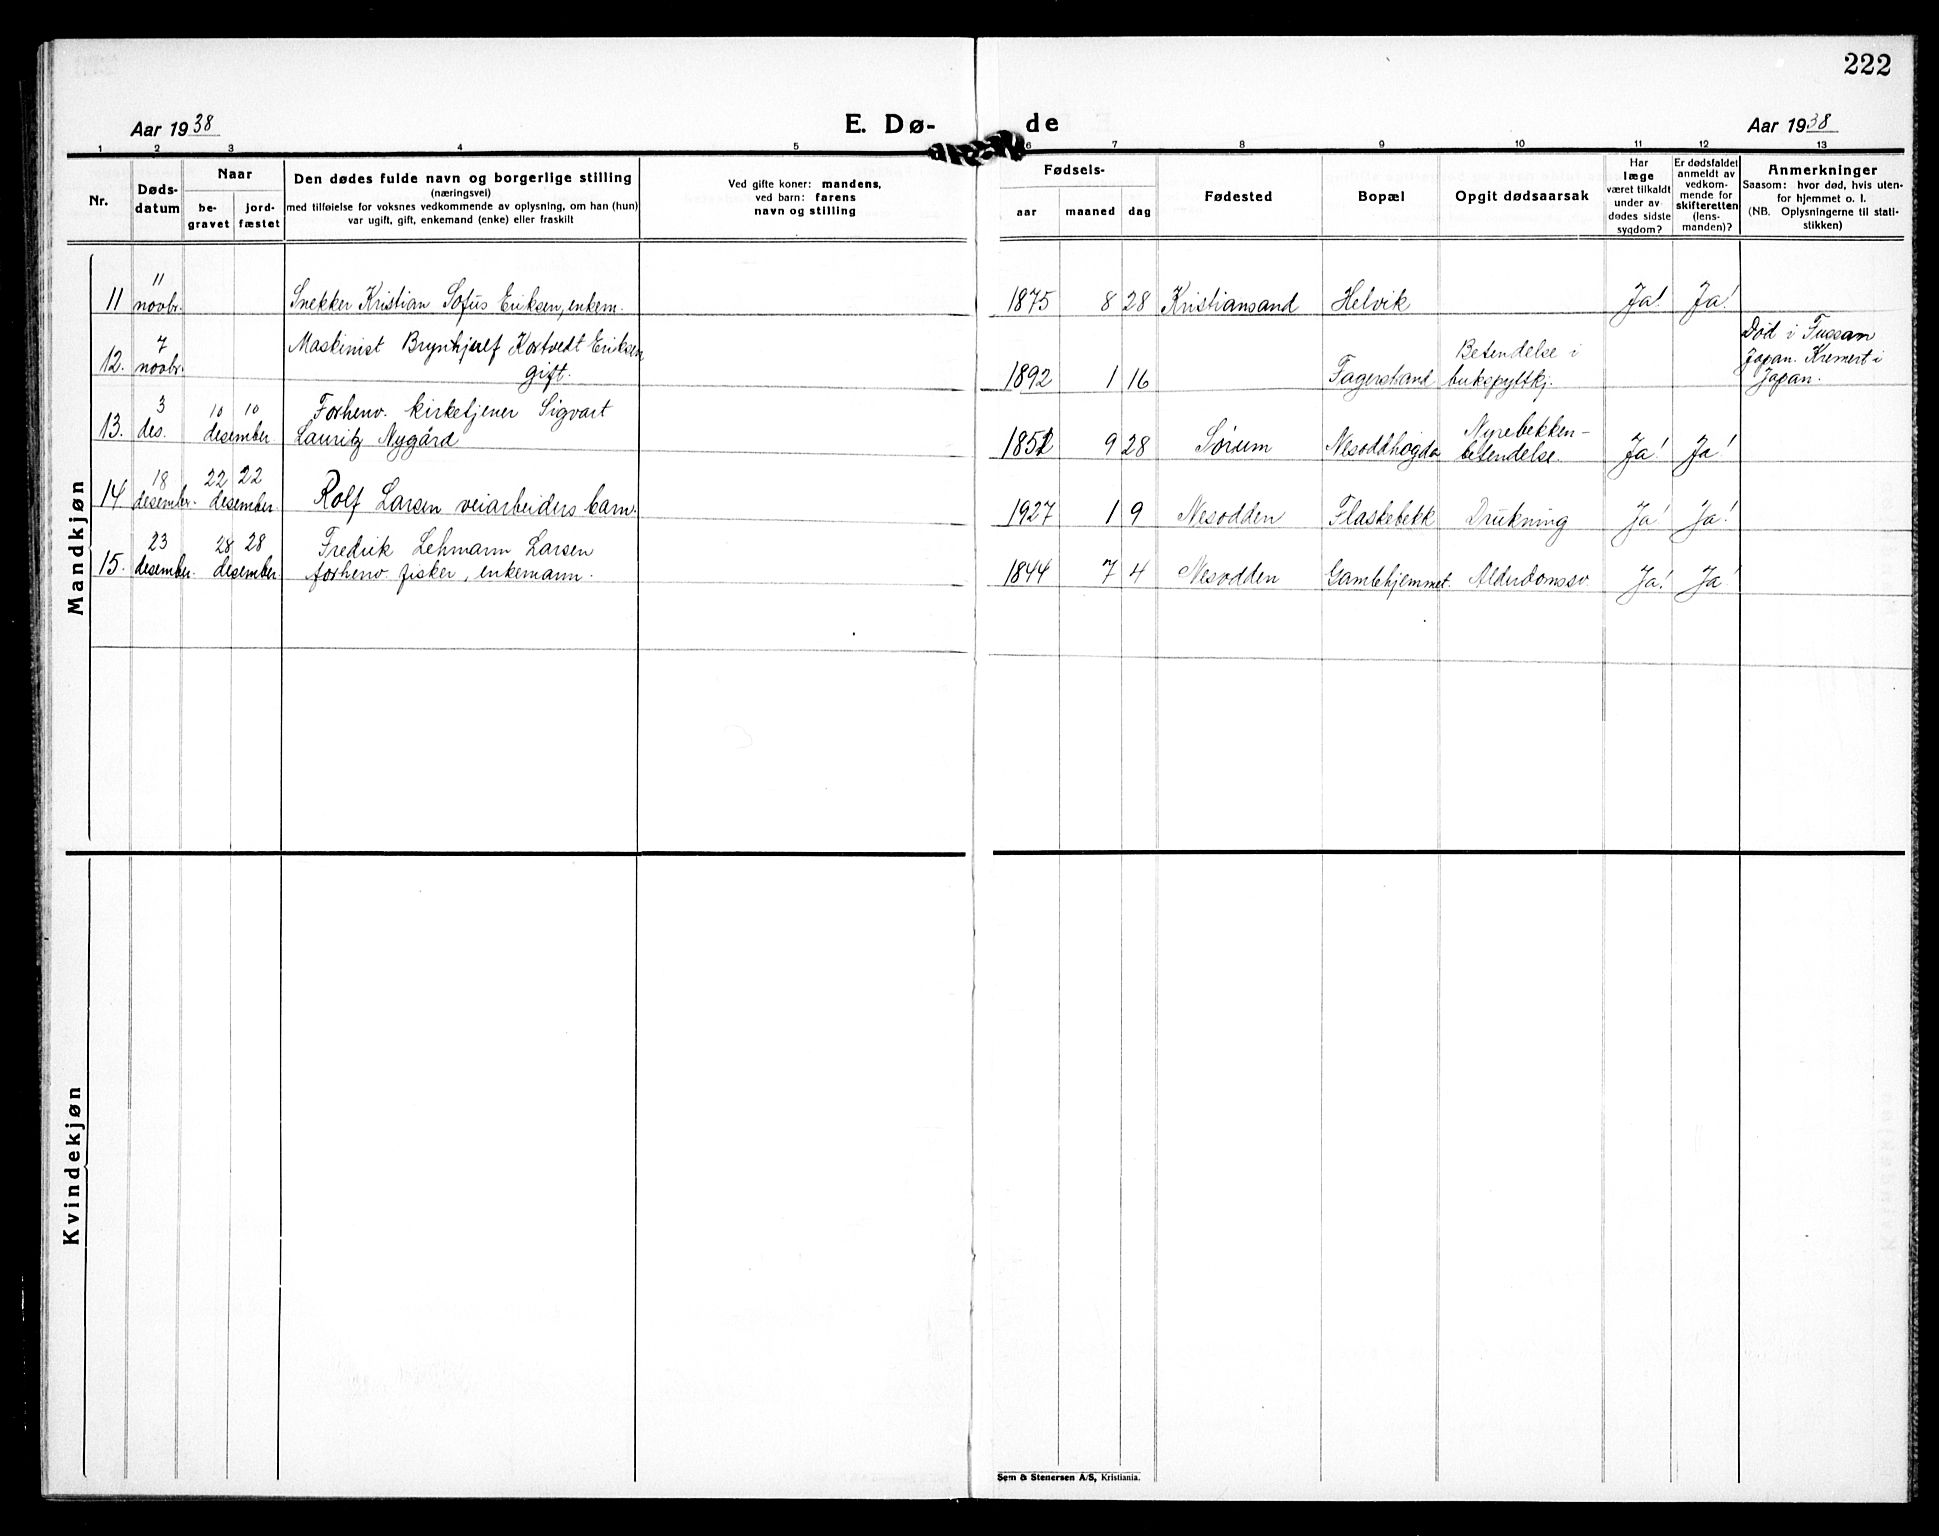 222
Aar 1938
E. Dø-
de
Aar 1938
1 2 3 4 5 6 7 8 9 10 11 12 13
Nr.
Døds-
datum
Naar
be-
gravet
jord-
fæstet
Den dødes fulde navn og borgerlige stilling
(næringsvei)
med tilføielse for voksnes vedkommende av oplysning, om han (hun)
var ugift, gift, enkemand (enke) eller fraskilt
Ved gifte koner: mandens,
ved barn: farens
navn og stilling
Fødsels-
aar maaned dag
Fødested
Bopæl
Opgit dødsaarsak
Har
læge
været tilkaldt
under av
dødes sidste
sygdom?
Er dødsfaldet
anmeldt av
vedkom-
mende for
skifteretten
(lens-
manden)?
Anmerkninger
Saasom: hvor død, hvis uten-
for hjemmet o. l.
(NB. Oplysningerne til stati-
stikken)
Mandkjøn
11
11 novbr. Snekker Kristian Sofus Eriksen, enkem. 1875 8 28 Kristiansand Helvik Ja! Ja!
7
Maskinist Brynhjulf Kortvedt Eriksen
Betendelse i
Død i Fusan
12. novbr. gift. 1892 1 16 Fagerstrand bukspyttkj. Japan. Kremert i
Japan.
3 10 10 Forhenv. kirketjener Sigvart
Nyrebekken-
13. des. desember Lauritz Nygård 1852 9 28 Sørum Nesoddhøgda betendelse. Ja! Ja!
18 22 22
14 desember. desember. Rolf Larsen veiarbeiders barn. 1927 1 9 Nesodden Flaskebekk Drukning Ja! Ja!
23 28 28 Fredrik Lehmann Larsen
15. desember. desember. forhenv. fisker, enkemann. 1844 7 4 Nesodden Gamlehjemmet. Alderdomssv. Ja! Ja!
Kvindekjøn
Sem & Stenersen A/S, Kristiania.